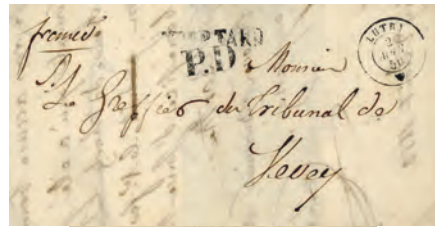 franco
P.D
LUTRY
Monsieur
Le Greffier du Tribunal de
Vevey